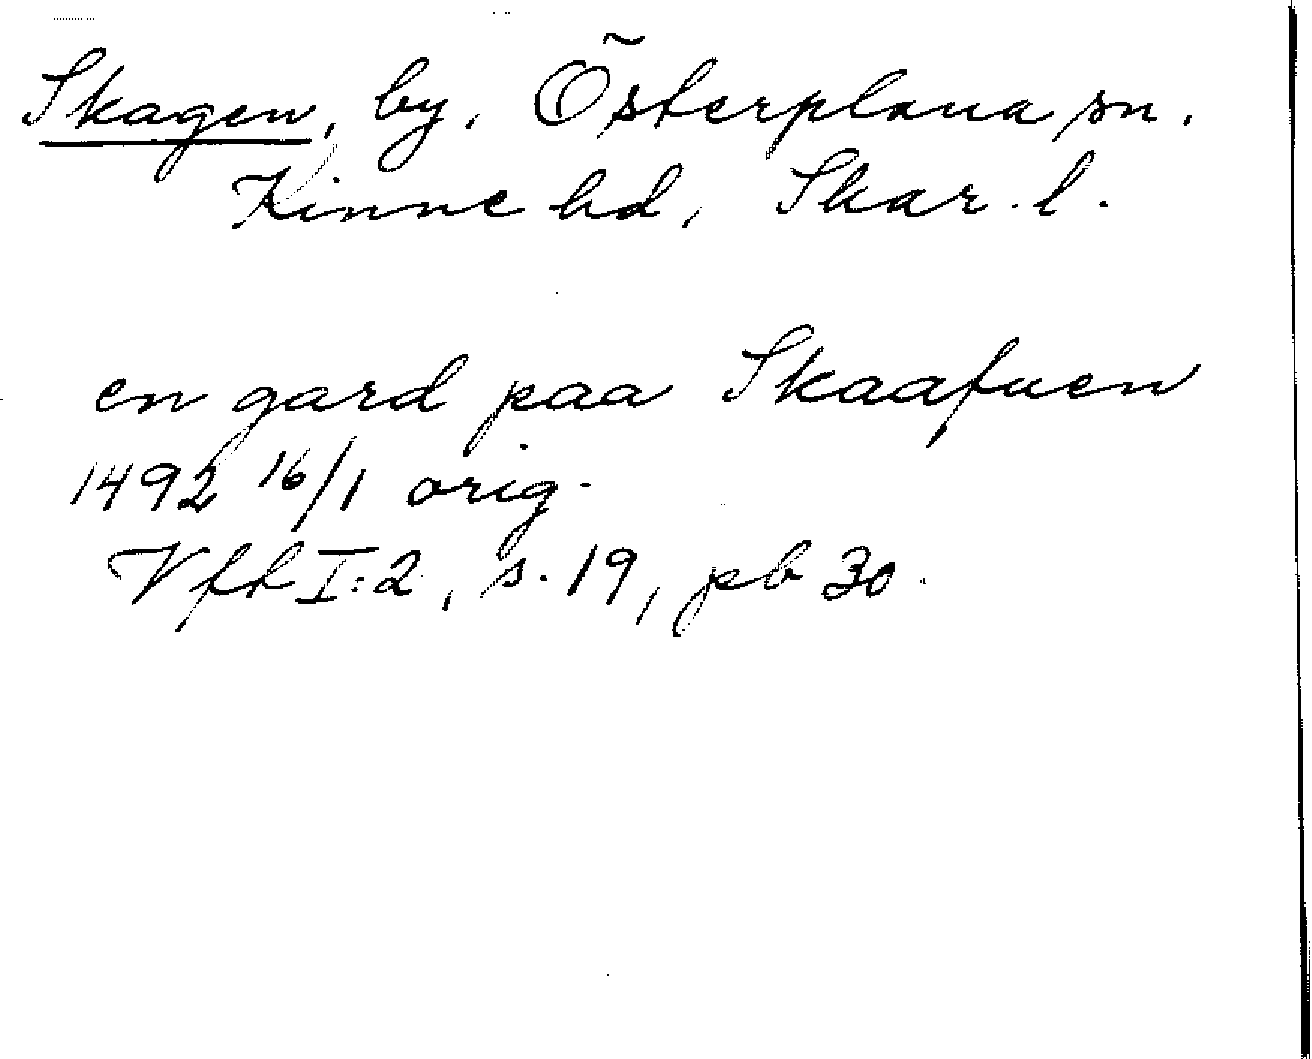 Skagen, by, Österplana sn.
Kinne hd, Skar. l.
en gard paa Skaafuen
1492 16/1 orig.
Vfft I:2, s. 19, pb 30.